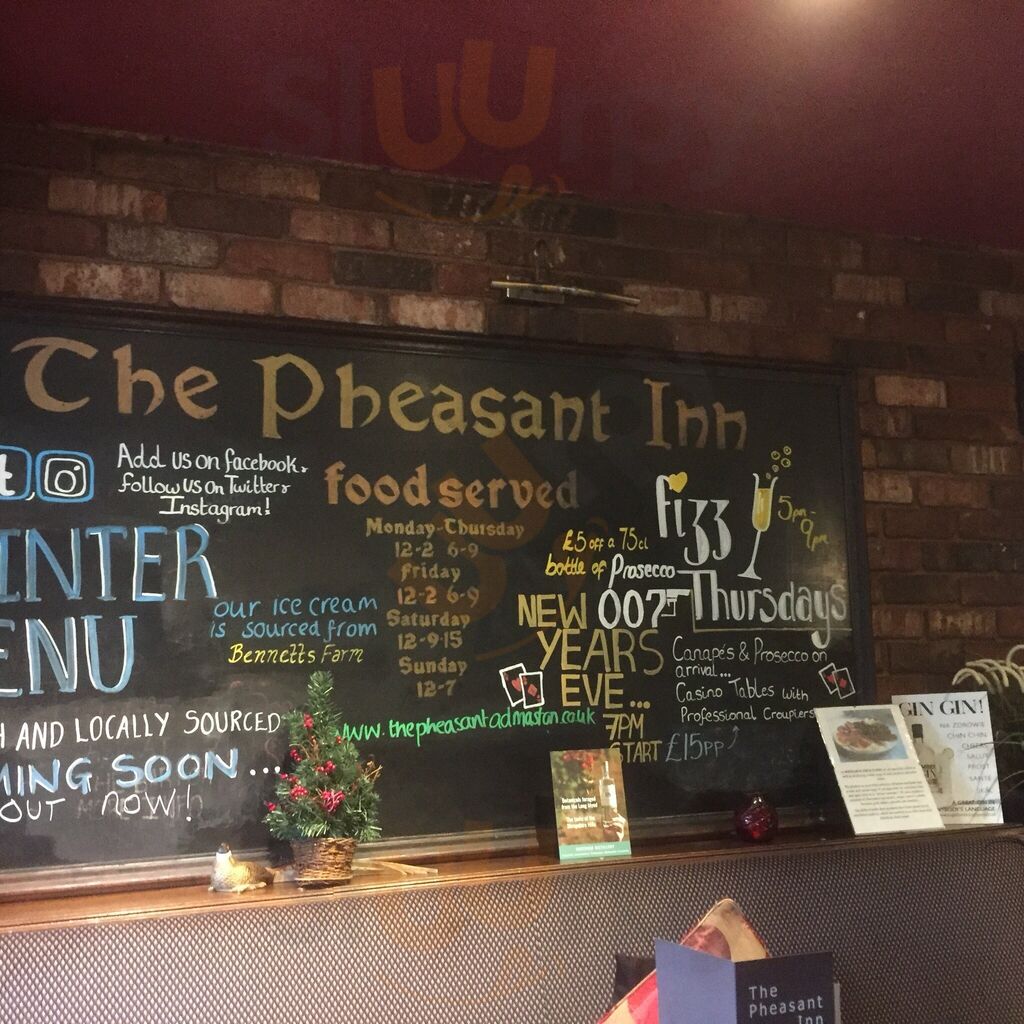 The Pheasant Inn
Add us on facebook,
follow us on Twitter &
Instagram!
food served
Monday-Thursday
12-2 6-9
Friday
12-2 6-9
Saturday
12-9·15
Sunday
12-7
INTER
ENU
our ice cream
is sourced from
Bennetts Farm
AND LOCALLY SOURCED
MING SOON...
OUT NOW!
www.thepheasantadmaston.co.uk
fizz
5pm-
9pm
Thursdays
£5 off a 75cl
bottle of Prosecco
NEW 007
YEARS
EVE...
7PM
START £15pp
Canapés & Prosecco on
arrival...
Casino Tables with
Professional Croupiers
GIN GIN!
NA ZDROWIE
CHIN CHIN
CHEERS
SALUT
PROST
SANTÉ
Botanicals foraged
from the Long Mynd
The taste of the
Shropshire Hills
The
Pheasant
Inn